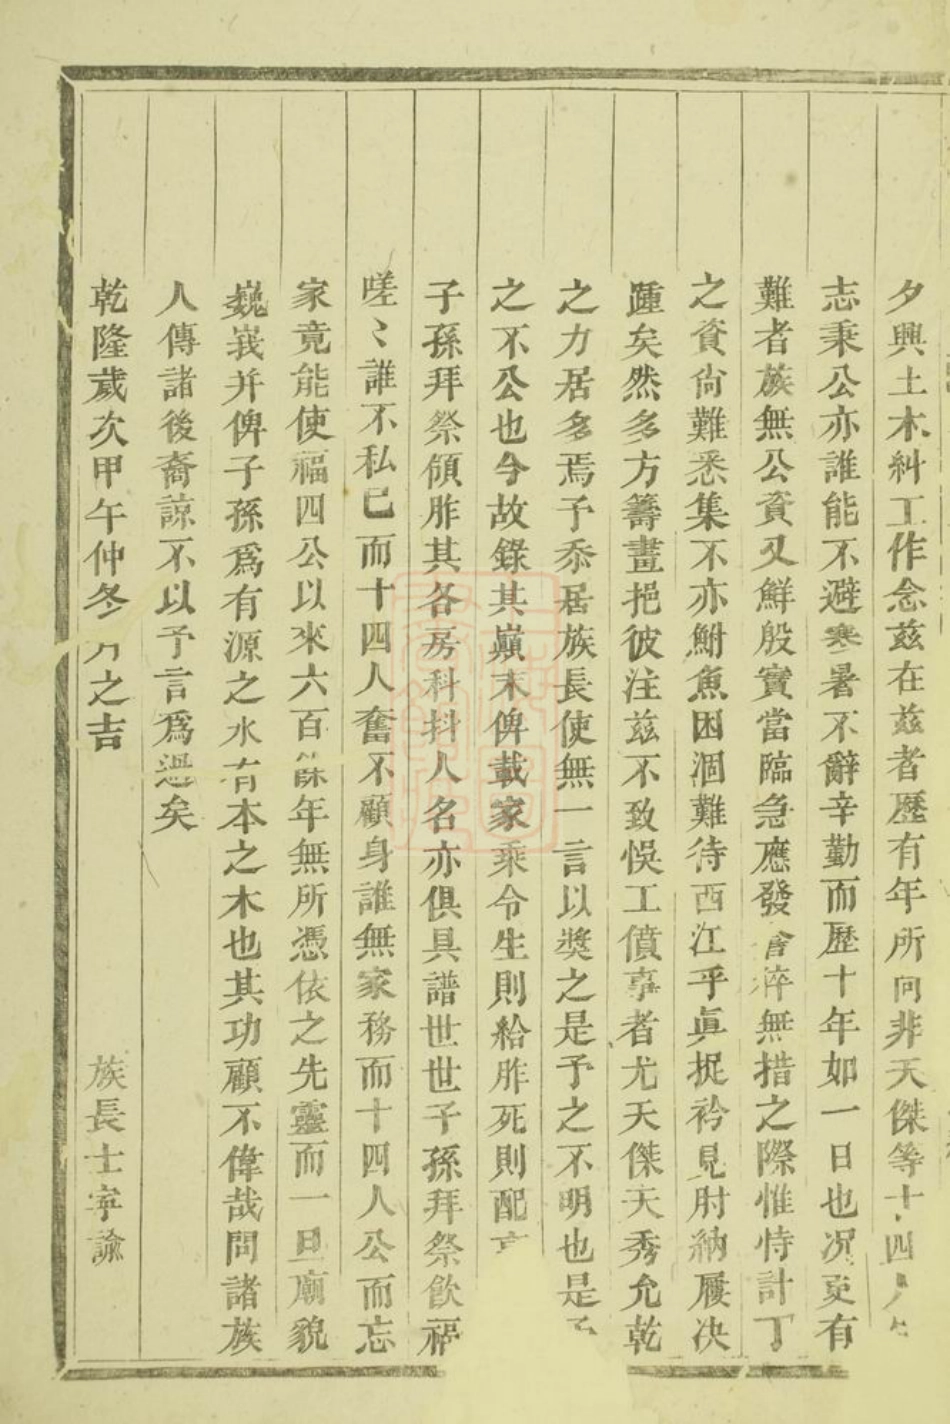 夕興土木糾工作念茲在茲者歷有年所向非天傑等十四人
志秉公亦誰能不避寒暑不辭辛勤而歷十年如一日也况更有
難者族無公資又鮮殷實當臨急應發倉猝無措之際惟恃計丁
之資尙難悉集不亦鮒魚困涸難待西江乎眞捉衿見肘納屨决
踵矣然多方籌畫挹彼注茲不致悞工僨事者尤天傑天秀允乾
之力居多焉予忝居族長使無一言以獎之是予之不明也是
之不公也今故錄其巔末俾載家乘令生則給胙死則配
子孫拜祭頒胙其各房科抖人名亦俱具譜世世子孫拜祭飮福
嗟〻誰不私己而十四人奮不顧身誰無家務而十四人公而忘
家竟能使福四公以來六百餘年無所憑依之先靈而一旦廟貌
巍峩并俾子孫爲有源之水有本之木也其功顧不偉哉問諸族
人傳諸後裔諒不以予言爲過矣
乾隆歲次甲午仲冬月之吉 族長士寧諭